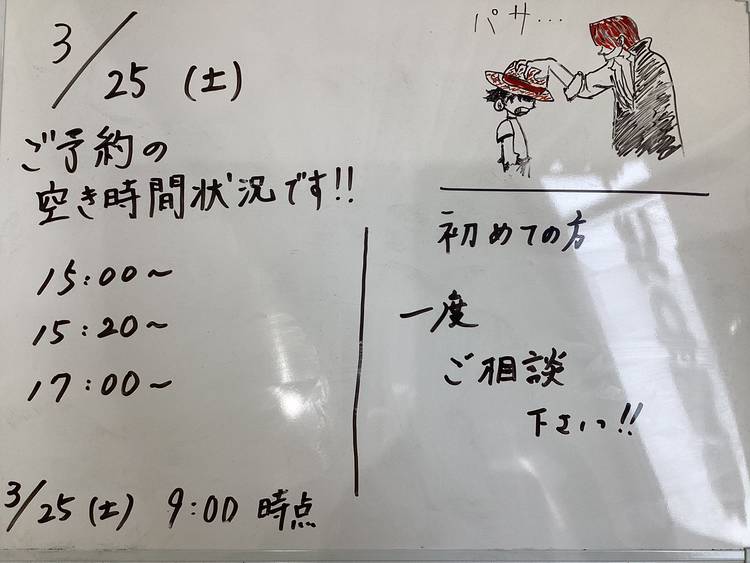 3/25 (土)
ご予約の
空き時間状況です!!
15:00~
15:20~
17:00~
3/25(土) 9:00 時点
パサ...
初めての方
一度
ご相談
下さいっ!!